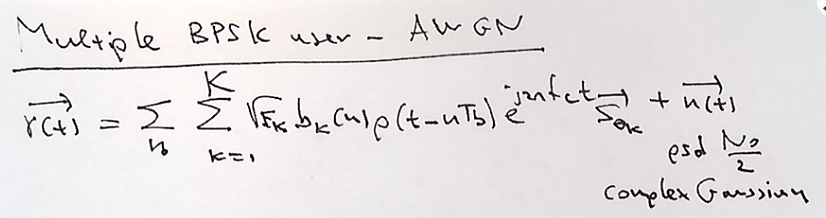 Multiple BPSK user - AWGN
r(t) = Σ_n Σ_{k=1}^{K} √E_k b_k(n) p(t-nT_b) e^{j2πf_ct} S_{θk} + n(t)
psd N_0/2
complex Gaussian